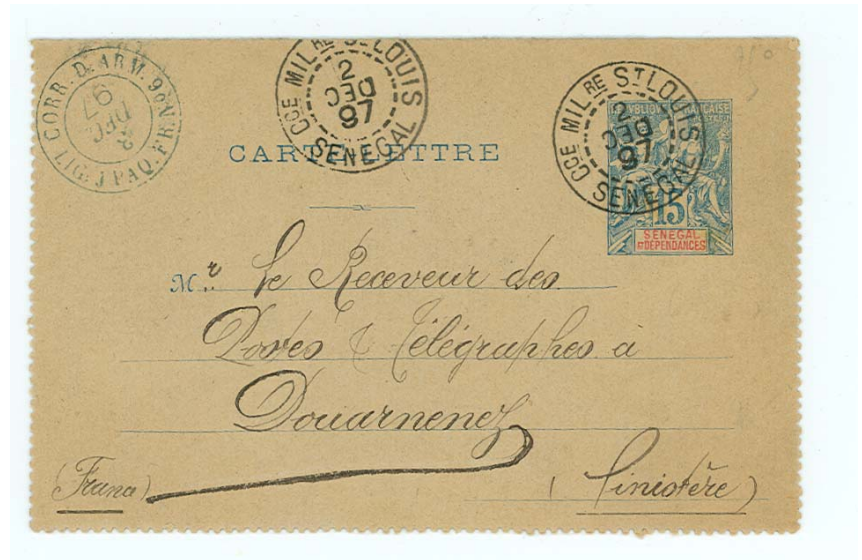 CORR. D. ARM. LIG. J PAQ. FR. Nº
DEC
97
CCE MILRE ST LOUIS
2
DEC
97
SENEGAL
CCE MILRE ST LOUIS
2
DEC
97
SENEGAL
RÉPUBLIQUE FRANÇAISE
15
SENEGAL
ET DÉPENDANCES
CARTE-LETTRE
Mr Le Receveur des
Postes & Télégraphes à
Douarnenez
(France) (Finistère)